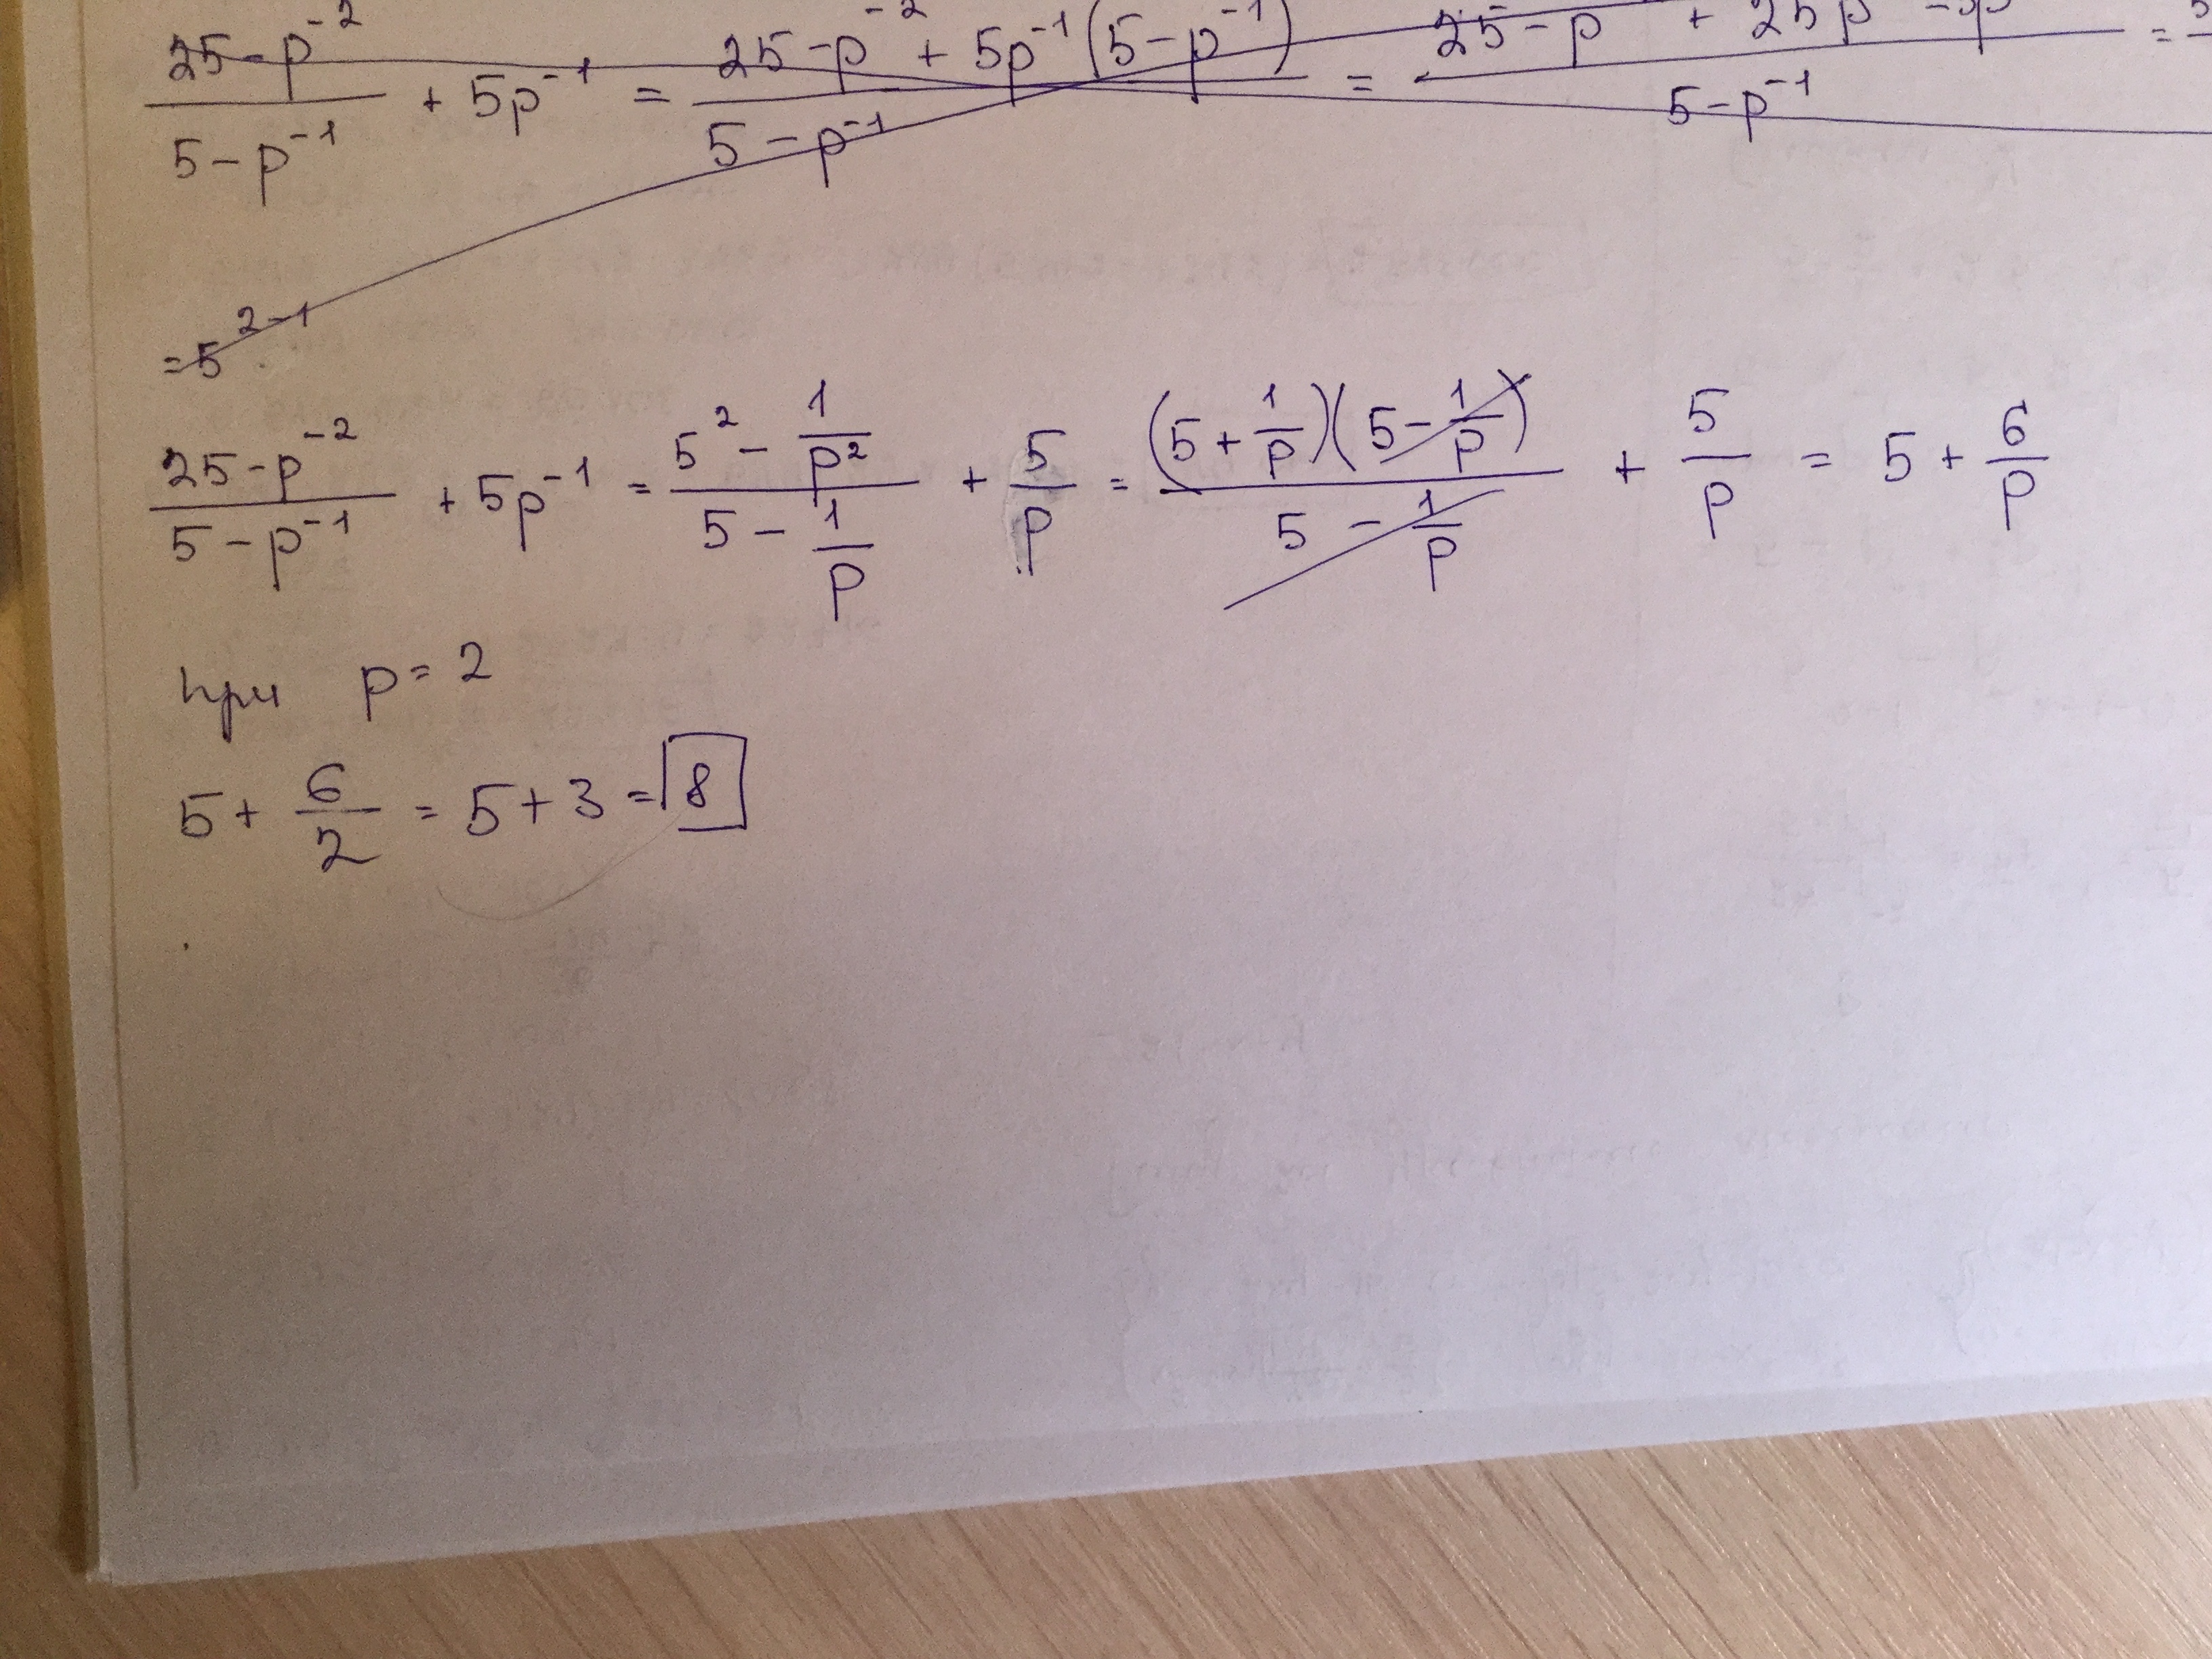 25-p⁻² / 5-p⁻¹ + 5p⁻¹ = 25-p⁻² + 5p⁻¹(5-p⁻¹) / 5-p⁻¹ = 25-p + 25p / 5-p⁻¹ =
= 5²⁻¹
25-p⁻² / 5-p⁻¹ + 5p⁻¹ = 5² - 1/p² / 5 - 1/p + 5/p = (5 + 1/p)(5 - 1/p) / 5 - 1/p + 5/p = 5 + 6/p
при p = 2
5 + 6/2 = 5 + 3 = 8